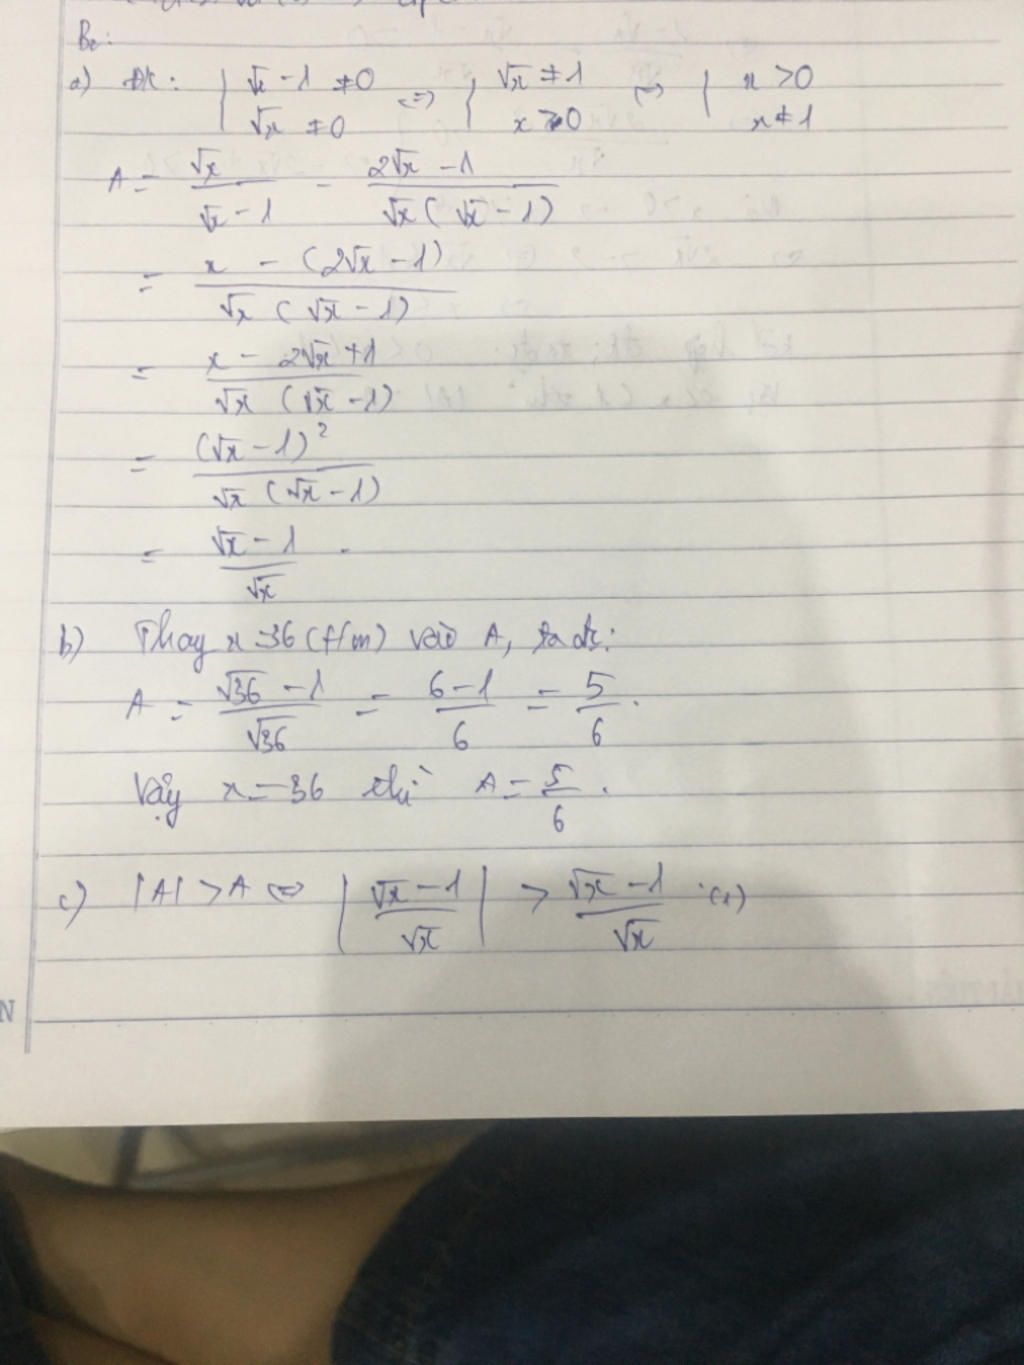 B2:
a) ĐK: { √x - 1 ≠ 0 <=> { √x ≠ 1 <=> { x > 0
√x ≠ 0 x > 0 x ≠ 1
A = √x / (√x - 1) - (2√x - 1) / (√x (√x - 1))
= (x - (2√x - 1)) / (√x (√x - 1))
= (x - 2√x + 1) / (√x (√x - 1))
= (√x - 1)² / (√x (√x - 1))
= (√x - 1) / √x .
b) Thay x = 36 (t/m) vào A, ta đc:
A = (√36 - 1) / √36 = (6 - 1) / 6 = 5/6 .
Vậy x = 36 thì A = 5/6 .
c) |A| > A <=> | (√x - 1) / √x | > (√x - 1) / √x . (1)
N